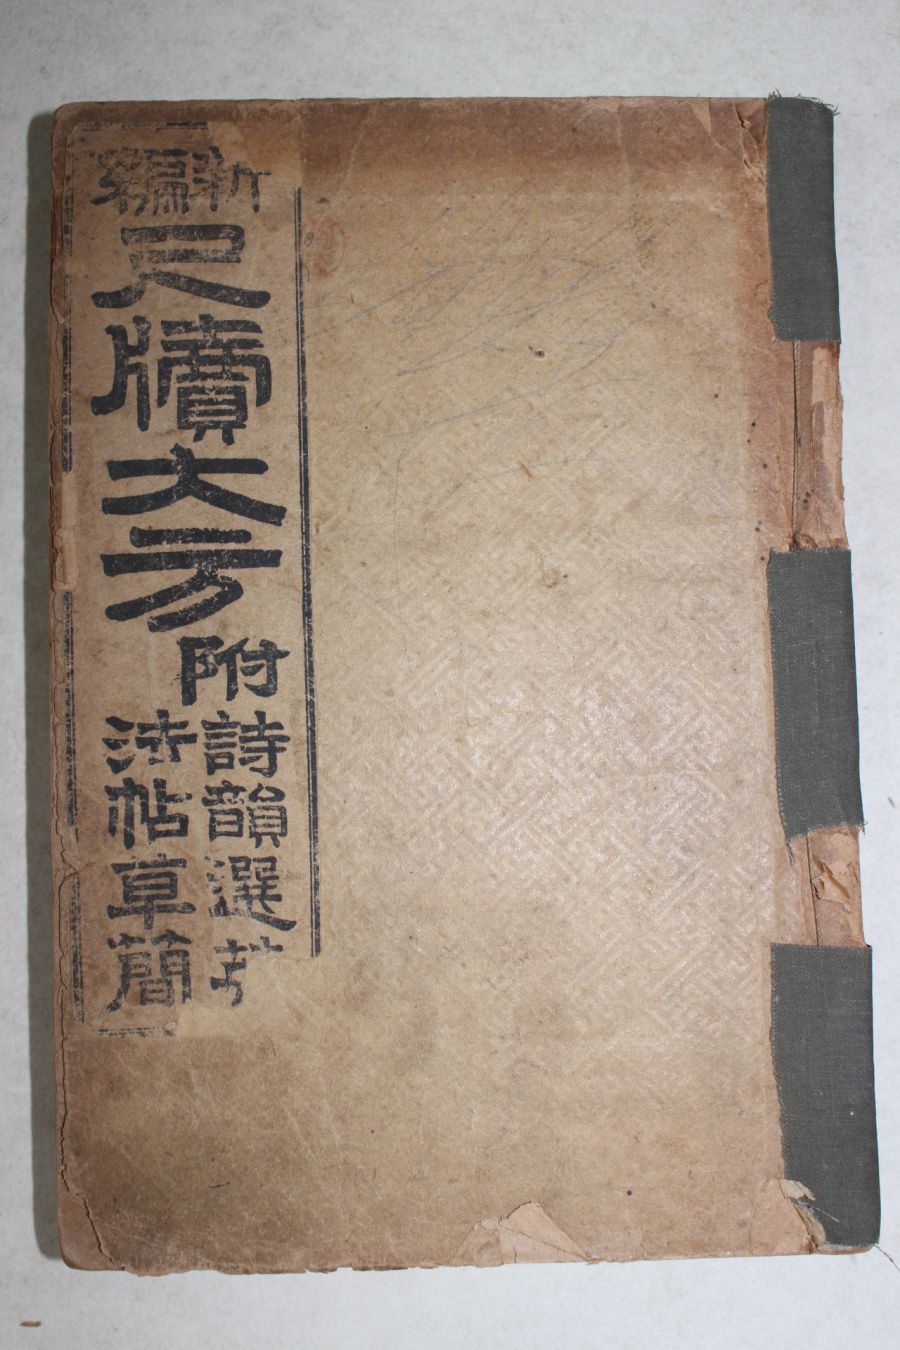 新編
尺牘大方
附
詩韻選
法帖草簡